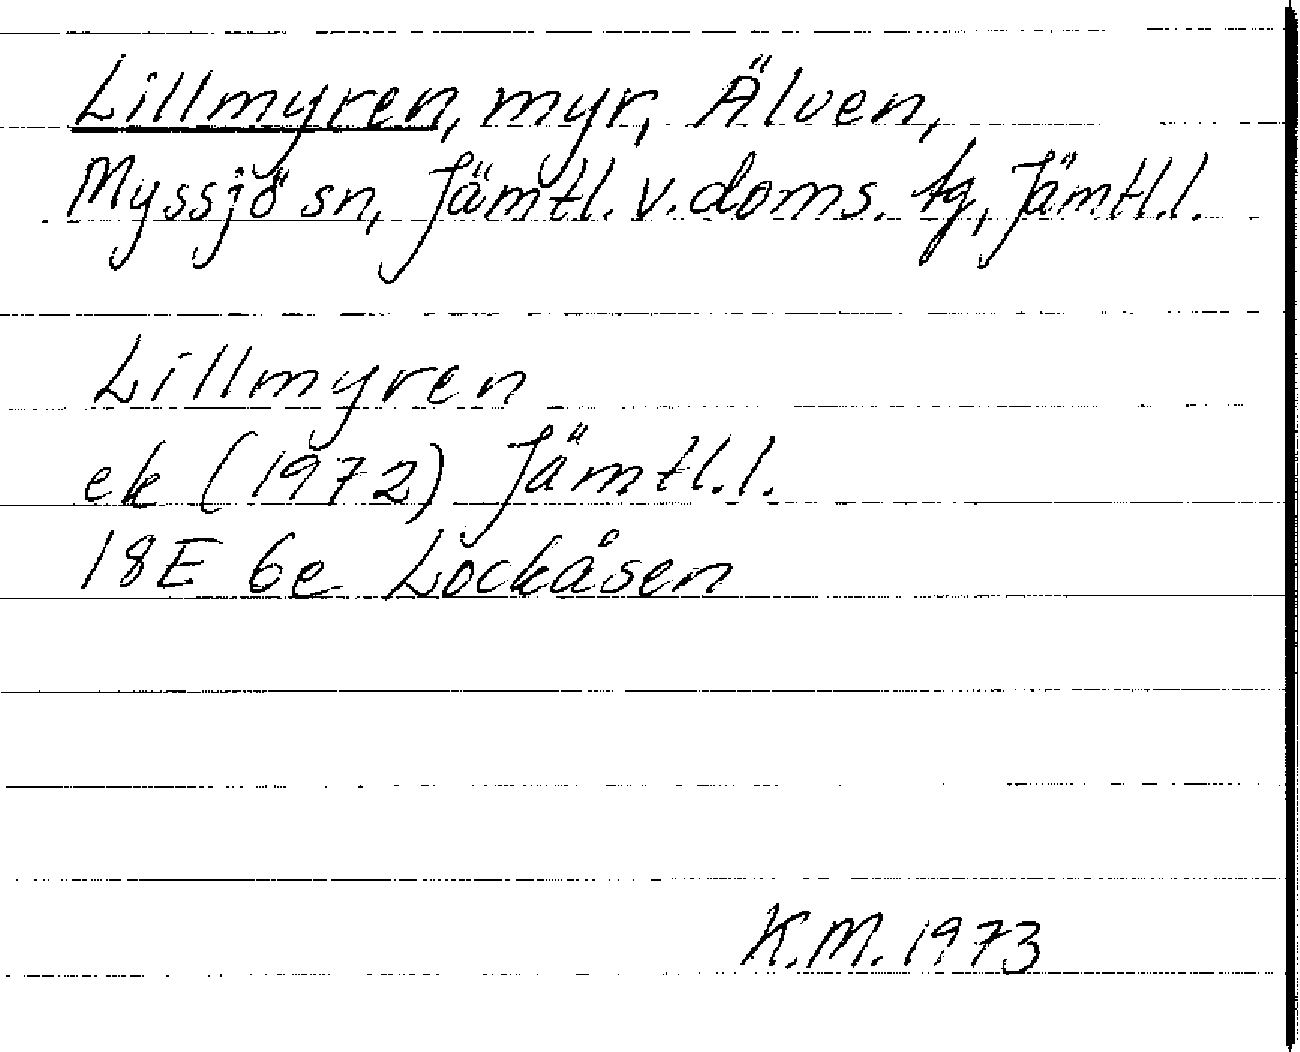 Lillmyren, myr, Älven,
Myssjö sn, Jämtl. v. doms. tg, Jämtl.l.
Lillmyren
ek (1972) Jämtl.l.
18E 6e Lockåsen
K.M. 1973